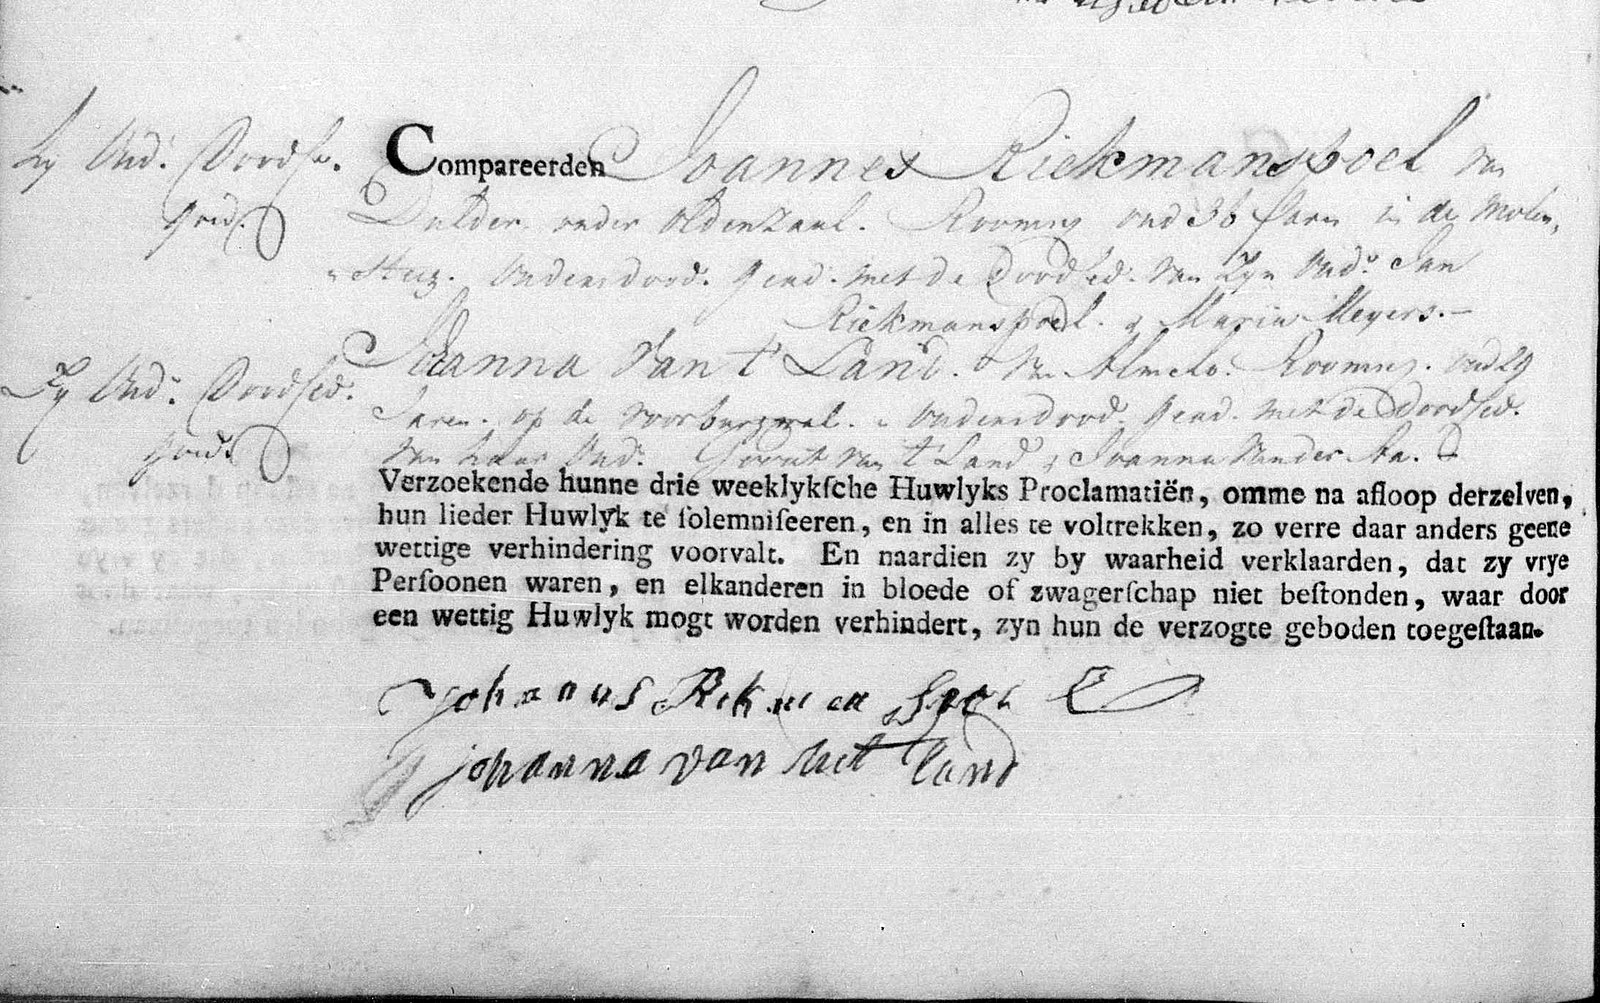 Zy Oud. Doodsc.
goed.
Compareerden Joannes Riekmanspoel van
Dulder onder Oldenzaal. Rooms oud 36 Jaren in de Molen,
Steeg. Ouders dood. gead. met de Doodsed. van Zyn Oud.s Jan
Riekmanspoel. & Maria Meyers.
Zy Oud. Doodsed.
goed.
Joanna Van t Land. Van Almelo. Rooms. oud 29
Jaren. op de voorburgwal. Ouders dood. gead. met de Doodsed.
van haar Oud. van t Land & Joanna Vander Aa.
Verzoekende hunne drie weeklykſche Huwlyks Proclamatiën, omme na afloop derzelven,
hun lieder Huwlyk te ſolemniſeeren, en in alles te voltrekken, zo verre daar anders geene
wettige verhindering voorvalt. En naardien zy by waarheid verklaarden, dat zy vrye
Perſoonen waren, en elkanderen in bloede of zwagerſchap niet beſtonden, waar door
een wettig Huwlyk mogt worden verhindert, zyn hun de verzogte geboden toegeſtaan.
Johanus Rekman Spoel
Johanna van het land